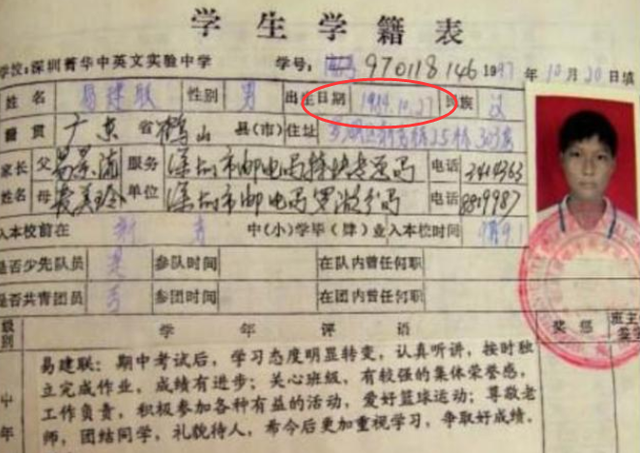 学生学籍表
学校：深圳菁华中英文实验中学 学号： 970118146 1997年10月20日填
姓名 易建联 性别 男 出生日期 1984.10.27 民族 汉
籍贯 广东省鹤山县(市) 住址
家长姓名 父 易景流 服务单位 深圳市邮电局特快专递局 电话
母 麦美玲 深圳市邮电局罗湖分局 电话 8819987
入本校前在 中(小)学毕(肄)业 入本校时间
是否少先队员 是 参队时间 在队内曾任何职
是否共青团员 否 参团时间 在团内曾任何职
级别 学年评语 奖惩 班主
易建联：期中考试后，学习态度明显转变，认真听讲，按时独
立完成作业，成绩有进步；关心班级，有较强的集体荣誉感，
工作负责，积极参加各种有益的活动，爱好篮球运动；尊敬老
师，团结同学，礼貌待人，希今后更加重视学习，争取好成绩。
中年